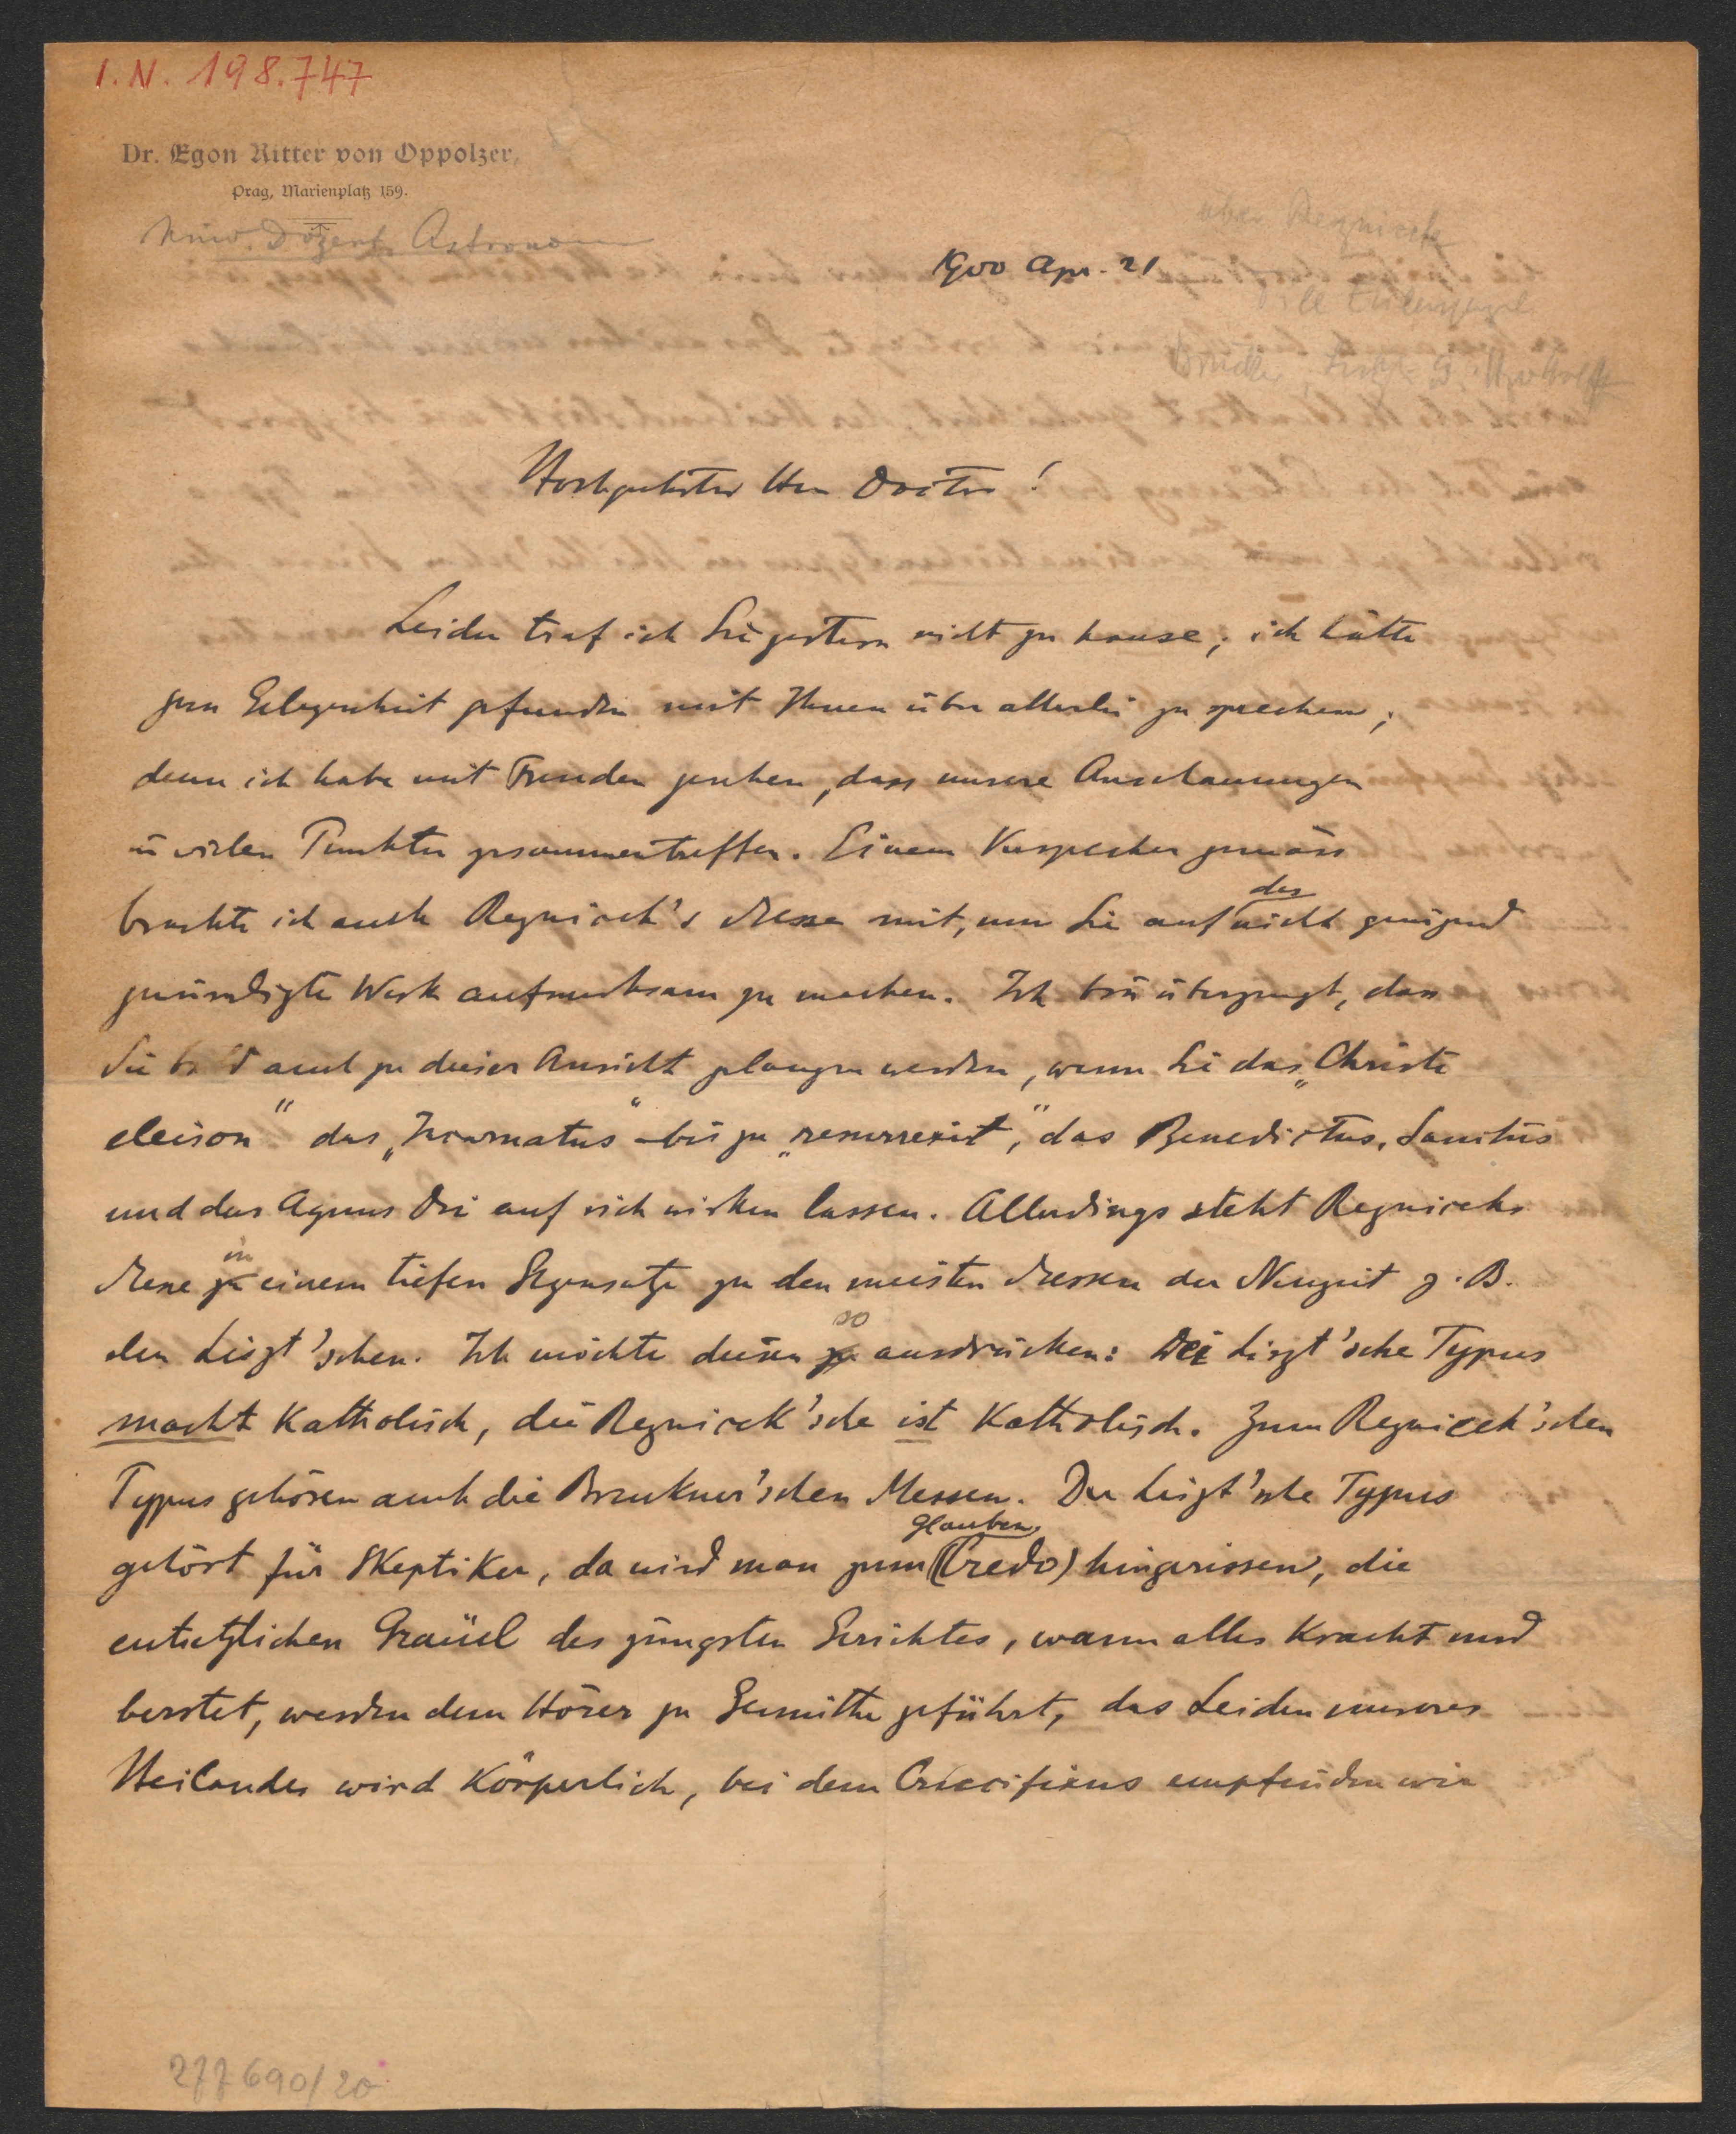 I. N. 198.747
Dr. Egon Ritter von Oppolzer,
Prag, Marienplatz 159.
Univ. Dozent Astronom
über Reznicek
Till Eulenspiegel
Bruckner, Liszt
1900 Apr. 21
Hochgeehrter Herr Doctor!
Leider traf ich Sie gestern nicht zu hause; ich hätte
gern Gelegenheit gefunden mit Ihnen über allerlei zu sprechen;
denn ich habe mit Freuden gesehen, dass unsere Anschauungen
in vielen Punkten zusammentreffen. Einem Versprechen gemäss
brachte ich auch Reznicek's Messe mit, um Sie auf das nicht genügend
gewürdigte Werk aufmerksam zu machen. Ich bin überzeugt, dass
Sie bald auch zu dieser Ansicht gelangen werden, wenn Sie das „Christe
eleison" das „Incarnatus" bis zu „resurrexit", das Benedictus, Sanctus
und das Agnus Dei auf sich wirken lassen. Allerdings steht Reznicek's
Messe in einem tiefen Gegensatze zu den meisten Messen der Neuzeit z. B.
den Liszt'schen. Ich möchte diesen so ausdrücken: Der Liszt'sche Typus
macht Katholisch, die Reznicek'sche ist Katholisch. Zum Reznicek'schen
Typus gehören auch die Bruckner'schen Messen. Der Liszt'sche Typus
gehört für Skeptiker, da wird man zum Glauben (Credo) hingerissen, die
entsetzlichen Graüel des jüngsten Gerichtes, wann alles Kracht und
berstet, werden dem Hörer zu Gemüthe geführt, das Leiden unseres
Heilandes wird Körperlich, bei dem Crucifixus empfinden wir
277690/20